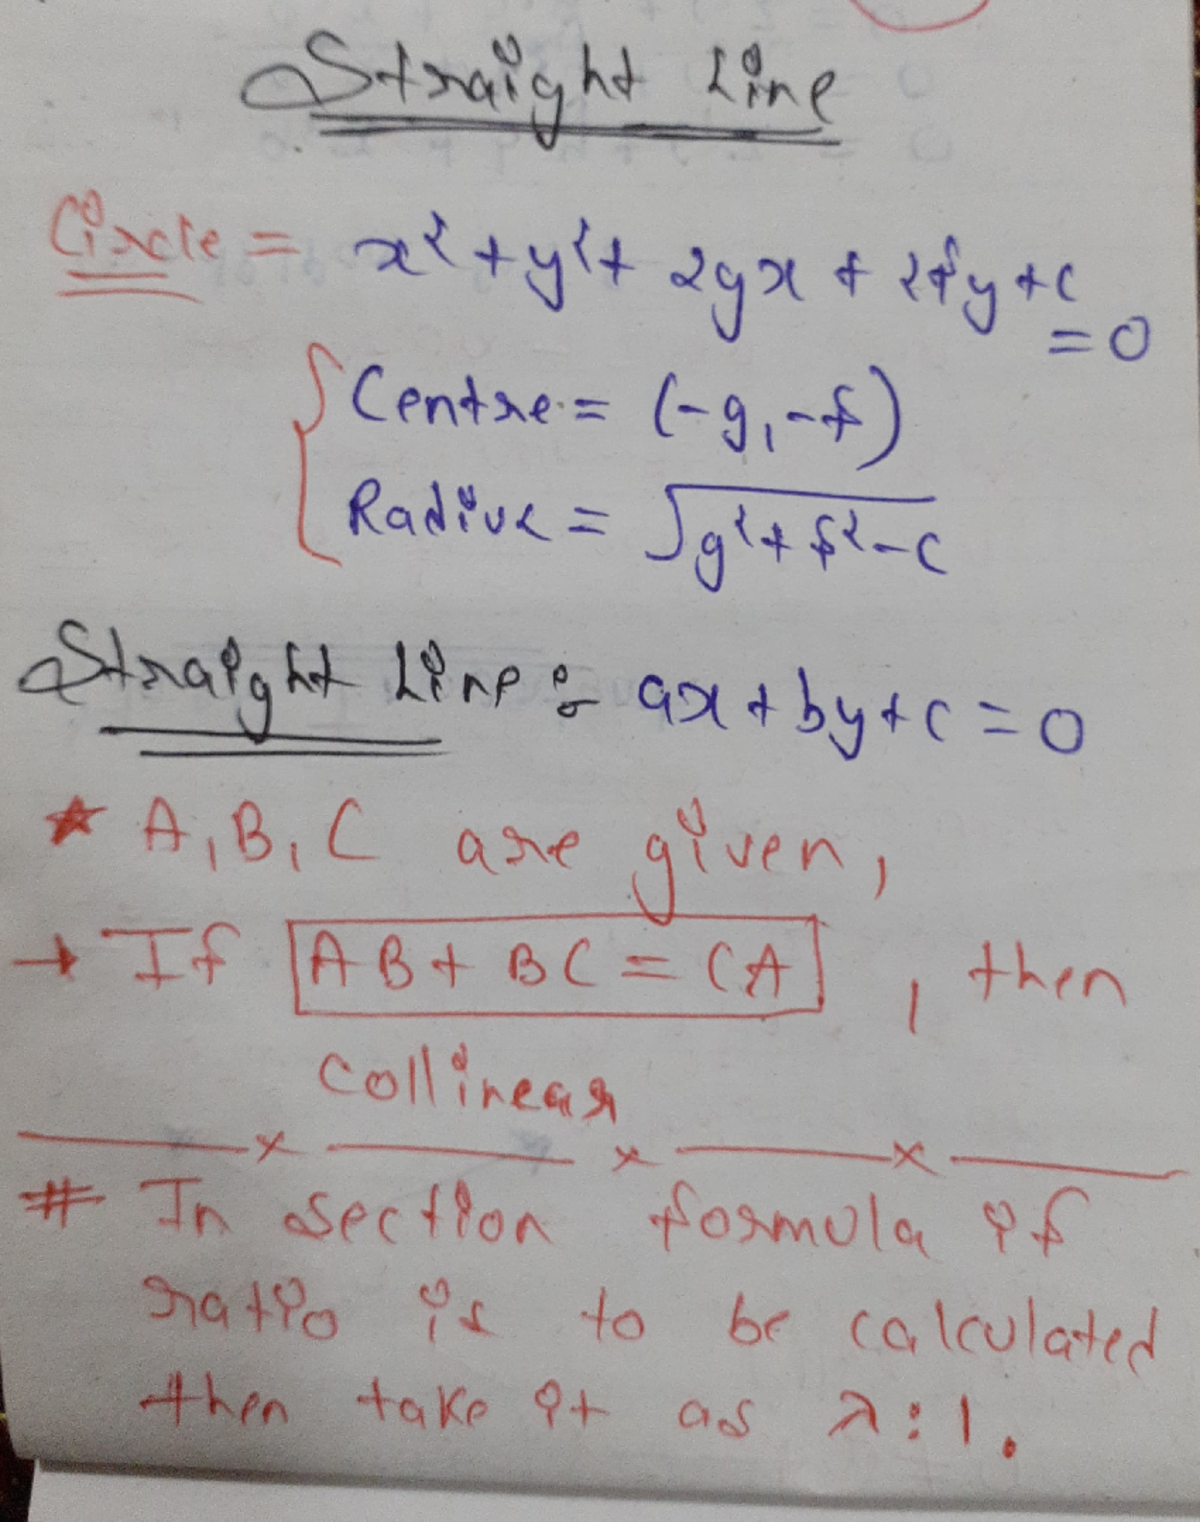 Straight Line
Circle = x² + y² + 2gx + 2fy + c
= 0
Centre = (-g, -f)
Radius = √g² + f² - c
Straight Line : ax + by + c = 0
* A, B, C are given,
→ If AB + BC = CA , then
collinear
# In section formula if
ratio is to be calculated
then take it as λ : 1.